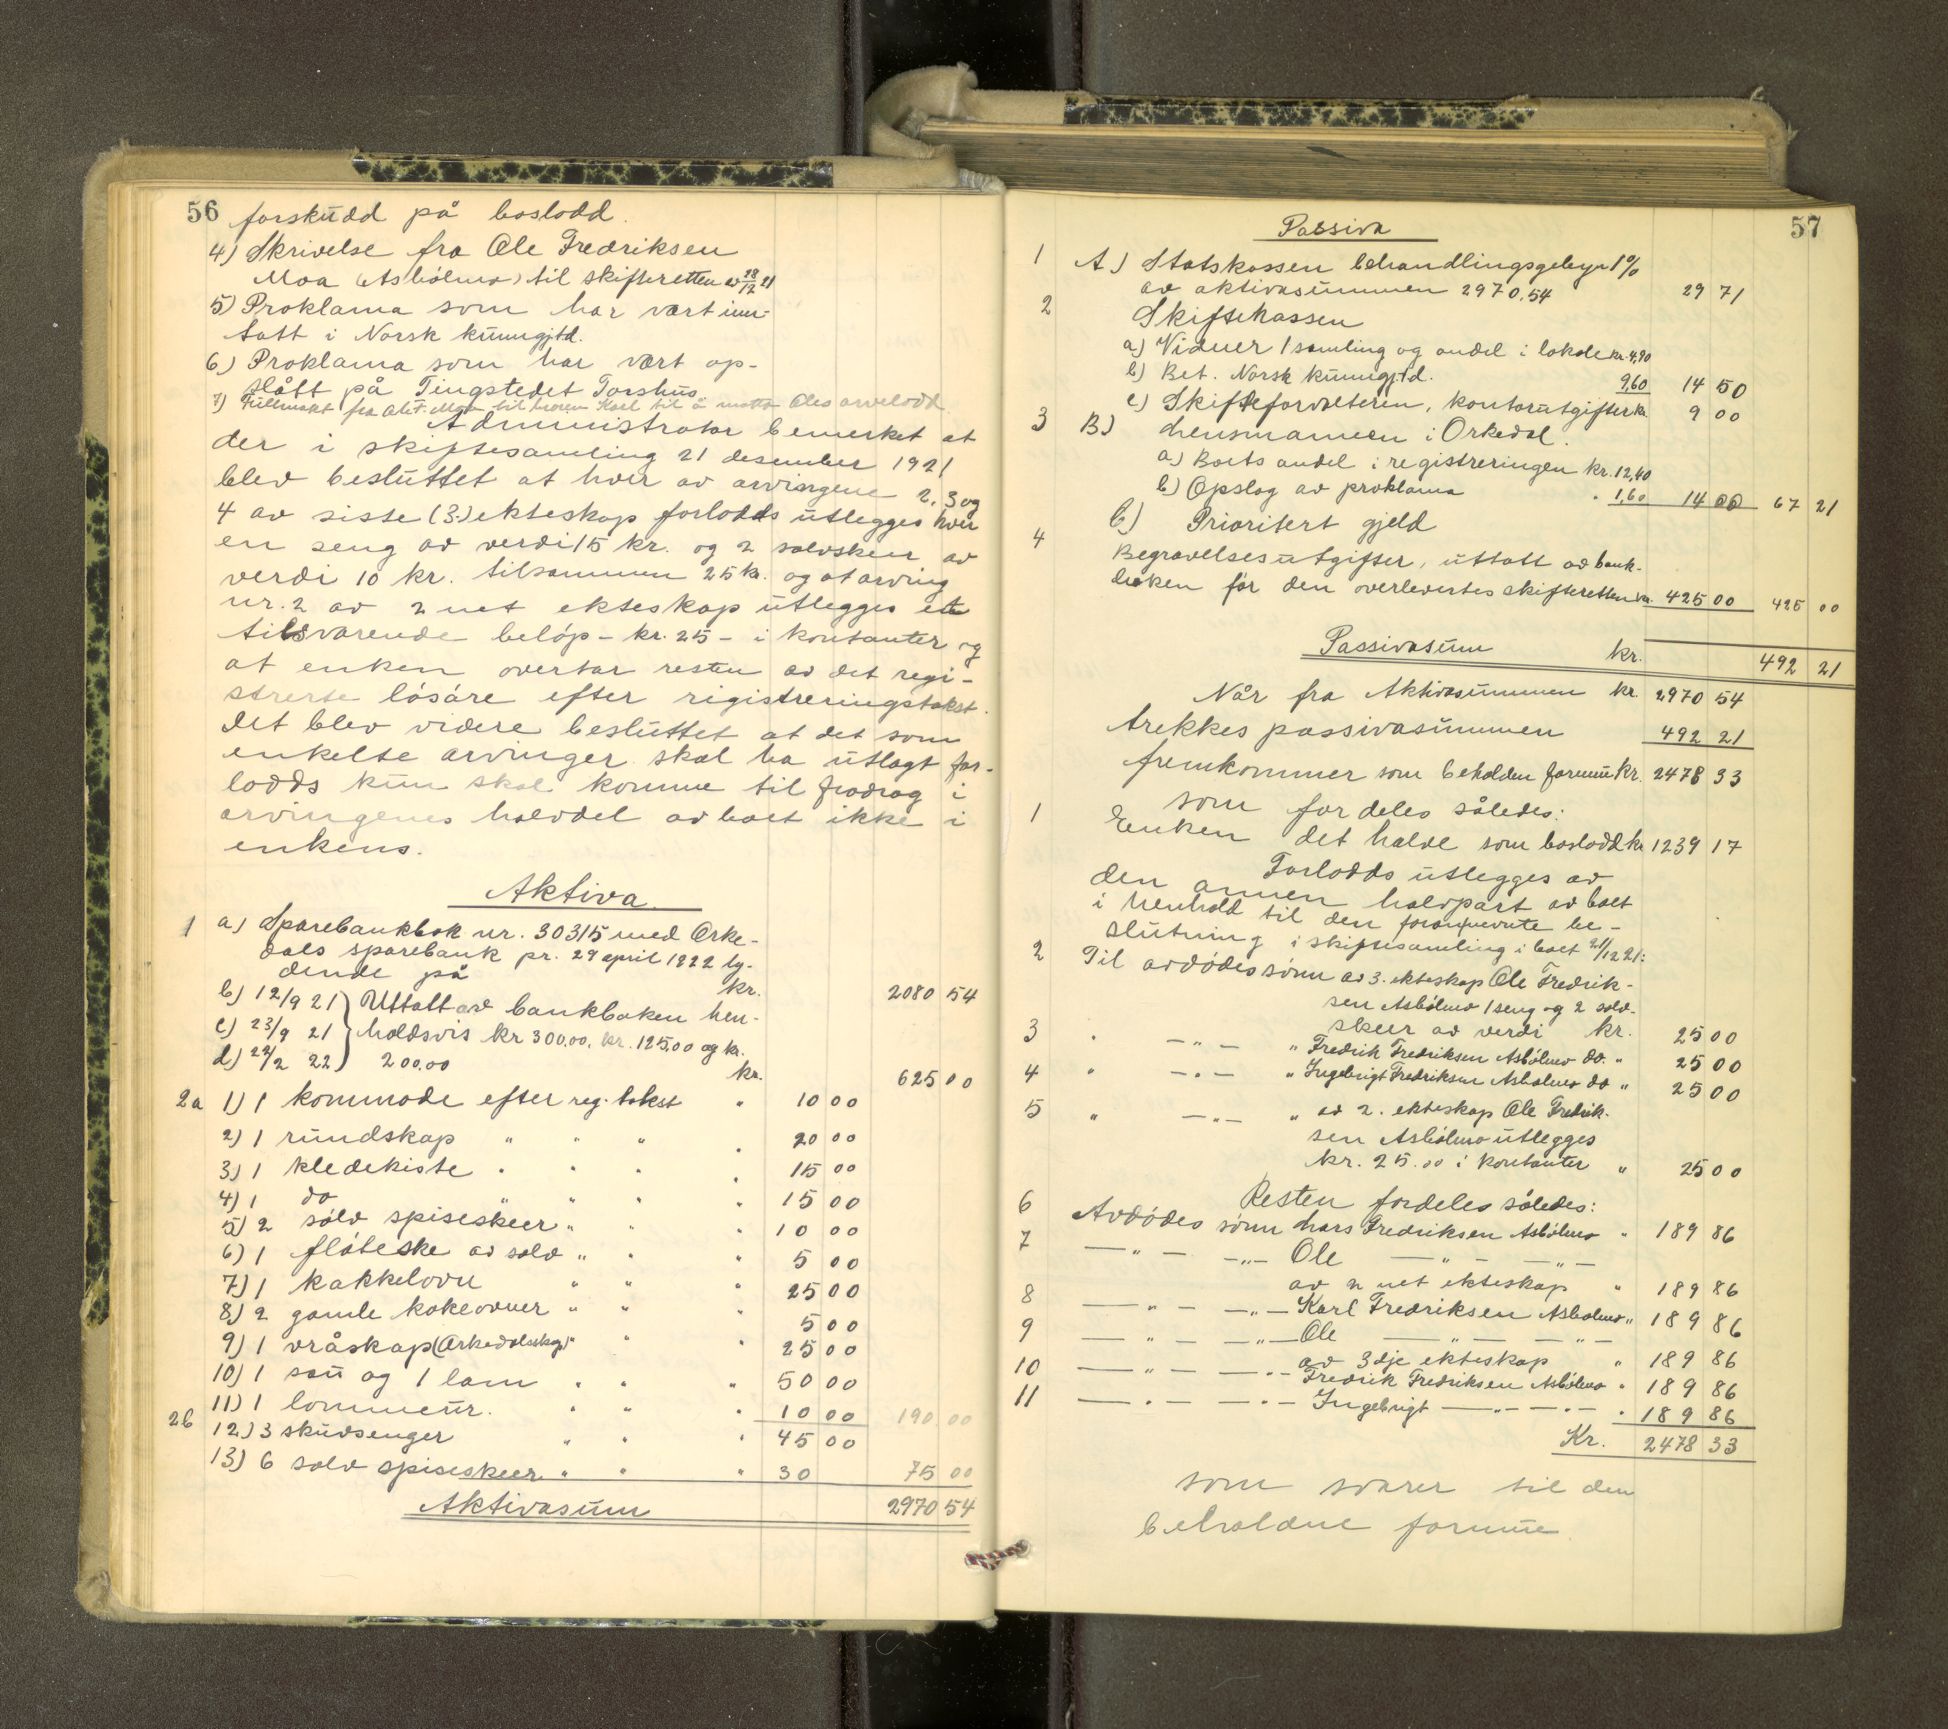 56
forskudd på boslodd.
4) Skrivelse fra Ole Fredriksen
Moa (Asbølmo) til skifteretten av 28/12 21
5) Proklama som har vært inn-
tatt i Norsk kunngjtd.
6) Proklama som har vært op-
slått på Tingstedet Torshus
7) Fullmakt fra Ole F. Moa til broren Karl til å motta Oles arvelodd.
Administrator bemerket at
der i skiftesamling 21 desember 1921
blev besluttet at hver av arvingene 2, 3 og
4 av siste (3.) ekteskap forlodds utlegges hver
en seng av verdi 15 kr. og 2 sølvskeer av
verdi 10 kr. tilsammen 25 kr. og at arving
nr. 2 av 2net ekteskap utlegges et
tilsvarende beløp - kr. 25 - i kontanter og
at enken overtar resten av det regi-
strerte løsøre efter rigistreringstakst.
Det blev videre besluttet at det som
enkelte arvinger skal ha utlagt for-
lodds kun skal komme til fradrag i
arvingenes halvdel av boet ikke i
enkens.
Aktiva.
1 a) Sparebankbok nr. 30315 med Orke-
dals sparebank pr. 29 april 1922 ly-
dende på kr. 2080 54
b) 12/9 21 } Uttatt av bankboken hen-
c) 23/9 21 } holdsvis kr 300,00, kr. 125,00 og kr.
d) 22/2 22 } 200.00 kr. 625 00
2a 1) 1 kommode efter reg. takst " 10 00
2) 1 rundskap " " " " 20 00
3) 1 kledekiste " " " " 15 00
4) 1 do " " " " 15 00
5) 2 sølv spiseskeer " " " 10 00
6) 1 fløteske av sølv " " " 5 00
7) 1 kakkelovn " " " 25 00
8) 2 gamle kokeovner " " " 5 00
9) 1 vråskap (Orkedalsskap) " " " 25 00
10) 1 sau og 1 lam " " " 50 00
11) 1 lommeur. " " " 10 00 190 00
2b 12) 3 skuvsenger " " " 45 00
13) 6 sølv spiseskeer " " " 30 75 00
Aktivasum 2970 54
57
Passiva
1 A) Statskassen behandlingsgebyr 1%
av aktivasummen 2970,54 29 71
2 Skiftekassen
a) Vidner 1 samling og andel i lokale kr. 4,90
b) Bet. Norsk kunngjtd. 9,60 14 50
c) Skifteforvalteren, kontorutgifter kr. 9 00
3 B) Lensmannen i Orkedal.
a) Boets andel i registreringen kr. 12,40
b) Opslag av proklama " 1,60 14 00 67 21
4 C) Prioritert gjeld
Begravelsesutgifter, uttatt av bank-
boken før den overlevertes skifteretten kr. 425 00 425 00
Passivasum kr. 492 21
Når fra Aktivasummen kr. 2970 54
trekkes passivasummen 492 21
fremkommer som beholden formue kr. 2478 33
som fordeles således:
1 Enken det halve som boslodd kr 1239 17
Forlodds utlegges av
den annen halvpart av boet
i henhold til den forannevnte be-
slutning i skiftesamling i boet 21/12 21:
2 Til avdødes sønn av 3. ekteskap Ole Fredrik-
sen Asbølmo 1 seng og 2 sølv-
skeer av verdi kr. 25 00
3 " — " — " Fredrik Fredriksen Asbølmo do. " 25 00
4 " — " — " Ingebrigt Fredriksen Asbølmo do " 25 00
5 " — " — " av 2. ekteskap Ole Fredrik-
sen Asbølmo utlegges
kr. 25.00 i kontanter " 25 00
Resten fordeles således:
6 Avdødes sønn Lars Fredriksen Asbølmo " 189 86
7 — " — — " — Ole — " — — " —
av 2net ekteskap " 189 86
8 — " — — " — Karl Fredriksen Asbølmo " 189 86
9 — " — — " — Ole — " — — " —
av 3dje ekteskap " 189 86
10 — " — — " — Fredrik Fredriksen Asbølmo " 189 86
11 — " — — " — Ingebrigt — " — — " — " 189 86
Kr. 2478 33
som svarer til den
beholdne formue.